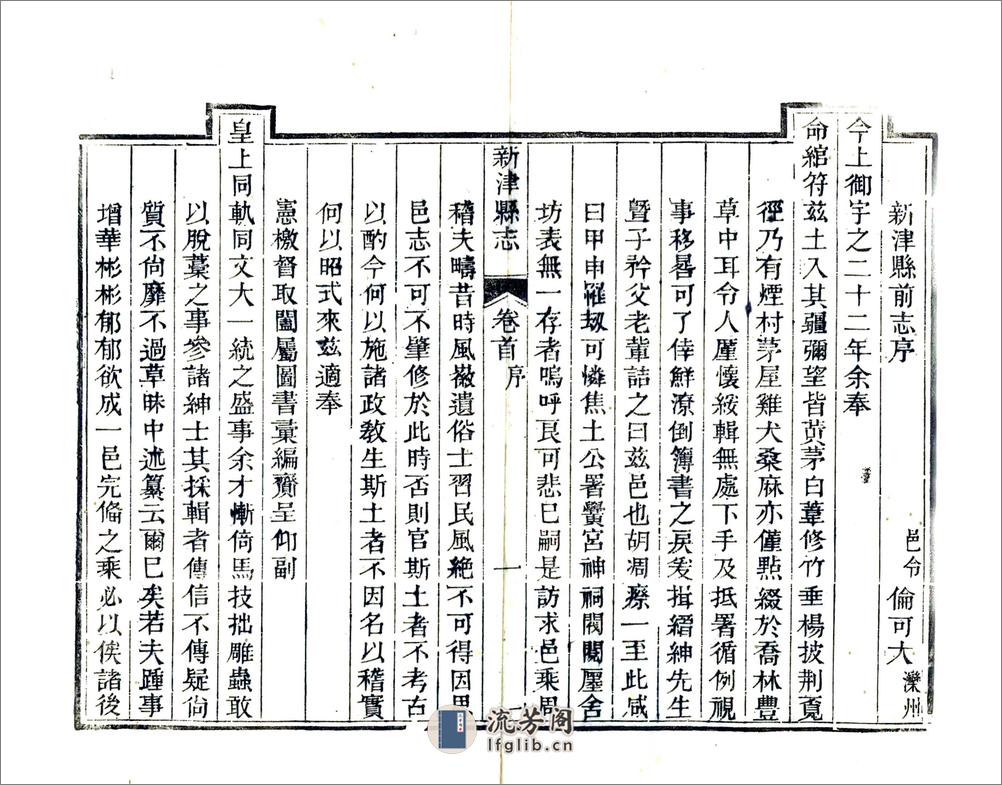 新津縣前志序
邑令 倫可大 灤州
今上御宇之二十二年余奉
命綰符茲土入其疆彌望皆黃茅白葦修竹垂楊披荆覓
徑乃有煙村茅屋雞犬桑麻亦僅點綴於喬林豐
草中耳令人厪懷綏輯無處下手及抵署循例視
事移晷可了倖鮮潦倒簿書之戾爰揖縉紳先生
暨子衿父老輩詰之曰茲邑也胡凋瘵一至此咸
曰甲申罹刼可憐焦土公署黌宮神祠閥閱廛舍
坊表無一存者嗚呼良可悲已嗣是訪求邑乘周
新津縣志 卷首 序 一
稽夫疇昔時風徽遺俗士習民風絶不可得因思
邑志不可不肇修於此時否則官斯土者不考古
以酌今何以施諸政敎生斯土者不因名以稽實
何以昭式來茲適奉
憲檄督取闔屬圖書彙編賫呈仰副
皇上同軌同文大一統之盛事余才慚倚馬技拙雕蟲敢
以脫藁之事參諸紳士其採輯者傳信不傳疑尙
質不尙靡不過草昧中述纂云爾已矣若夫踵事
增華彬彬郁郁欲成一邑完俻之乘必以俟諸後
流芳阁
lfglib.cn